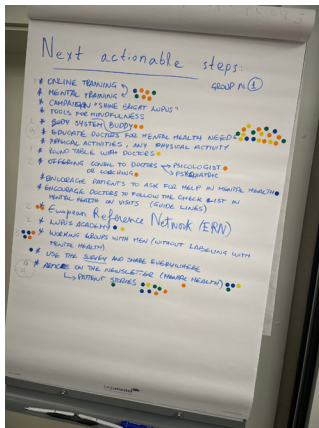 Next actionable steps:
GROUP N. 1
* ONLINE TRAINING
* MENTAL TRAINING
* CAMPAIGN "SHINE BRIGHT LUPUS"
* TOOLS FOR MINDFULNESS
* BODY SYSTEM / BUDDY
* EDUCATE DOCTORS FOR MENTAL HEALTH NEED
* PHYSICAL ACTIVITIES, ANY PHYSICAL ACTIVITY
* ROUND TABLE WITH DOCTORS
* OFFERING CONSUL TO DOCTORS → PSICOLOGIST
OR COACHING → PSYCHIATRIC
* ENCORAGE PATIENTS TO ASK FOR HELP IN MENTAL HEALTH
* ENCORAGE DOCTORS TO FOLLOW THE CHECK LIST IN
MENTAL HEALTH ON VISITS (GUIDE LINES)
* European Reference Network (ERN)
* LUPUS ACADEMY
* WORKING GROUPS WITH MEN (WITHOUT LABELING WITH
MENTAL HEALTH)
* USE THE SURVEY AND SHARE EVERYWHERE
* ARTICLE ON THE NEWSLETTER (MENTAL HEALTH)
↳ PATIENT STORIES
legamaster